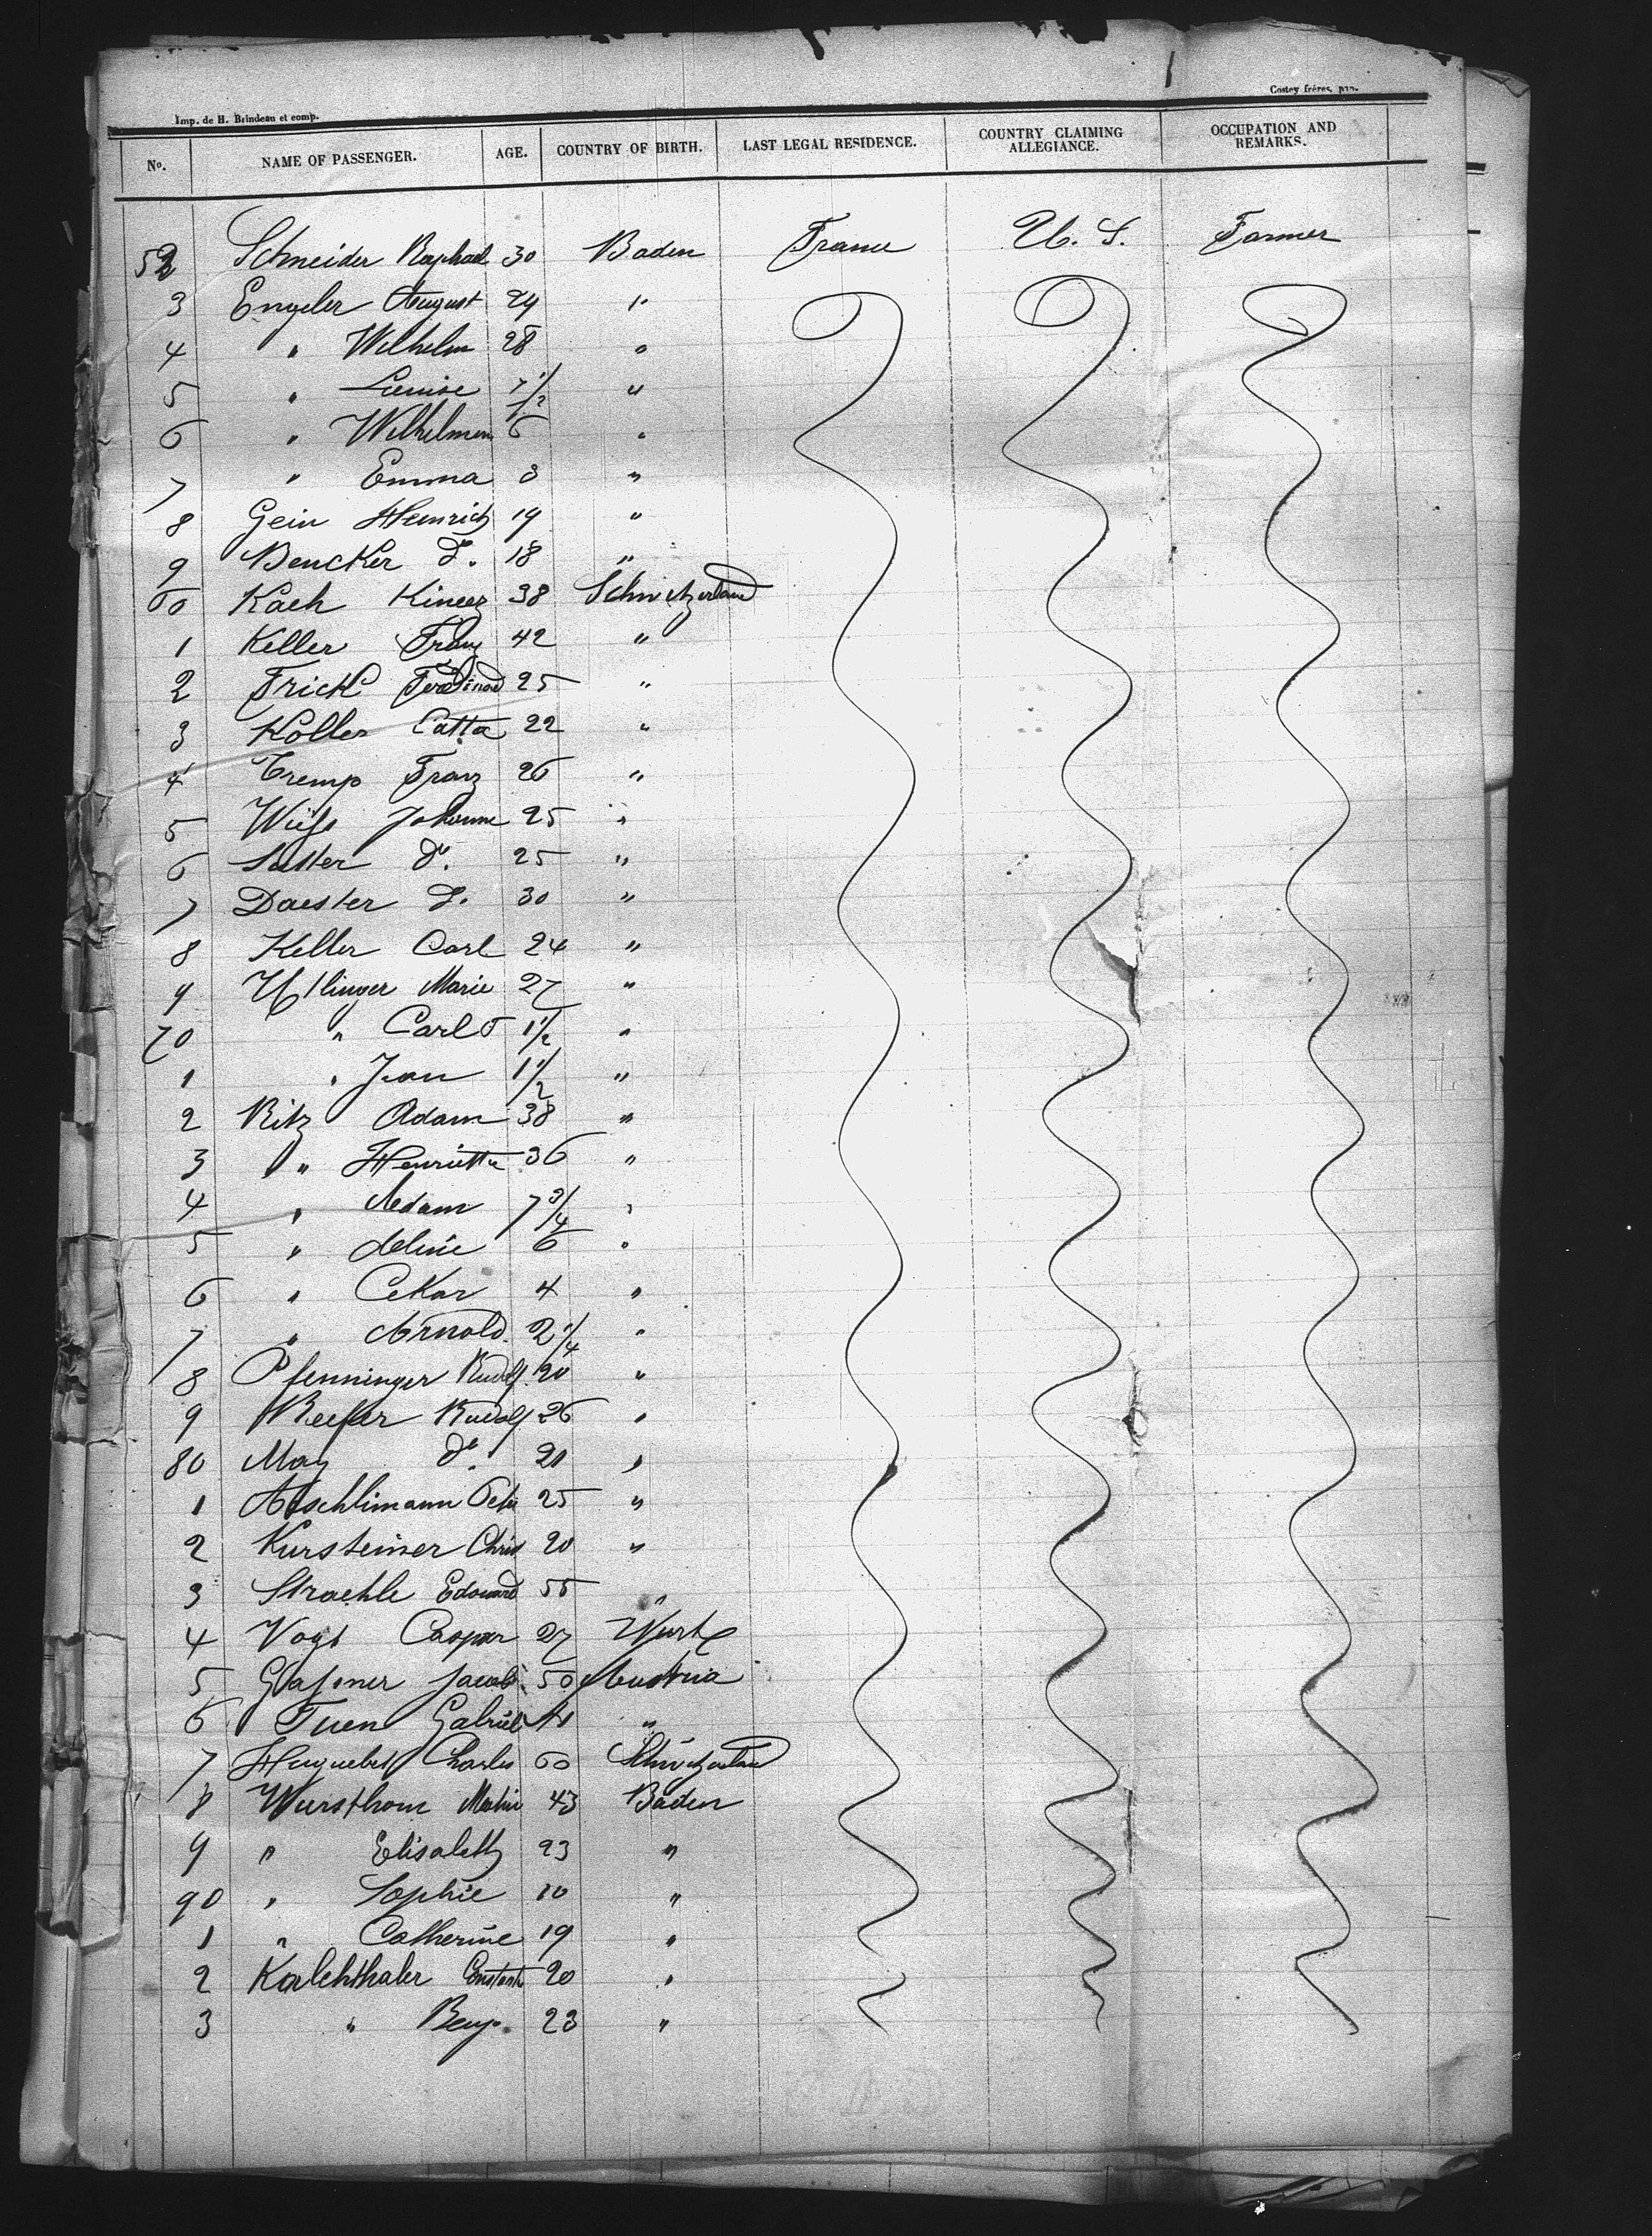 Imp. de H. Brindeau et comp. Costey frères, pap.
No. NAME OF PASSENGER. AGE. COUNTRY OF BIRTH. LAST LEGAL RESIDENCE. COUNTRY CLAIMING ALLEGIANCE. OCCUPATION AND REMARKS.
52 Schneider Raphael 30 Baden France U. S. Farmer
3 Engeler August 24 "
4 " Wilhelm 28 "
5 " Louise 7 1/2 "
6 " Wilhelmen 6 "
7 " Emma 3 "
8 Gein Heinrich 19 "
9 Bencker d. 18 "
60 Kach 38 Schwitzerland
1 Keller Franz 42 "
2 Frick Ferdinad 25 "
3 Koller Catta 22 "
4 Tremp Franz 26 "
5 Johanne 25 "
6 Sutter do. 25 "
7 Daester d. 30 "
8 Keller Carl 24 "
9 Marie 27 "
70 " Carl 1 1/2 "
1 " Jean 1 1/2 "
2 Ritz Adam 38 "
3 " Henrietta 36 "
4 " Adam 7 3/4 "
5 " Aline 6 "
6 " 4 "
7 " Arnold 2 1/4 "
8 Pfenninger Rudolf 20 "
9 Rudolf 26 "
80 May do. 21 "
1 Aeschlimann 25 "
2 Kursteiner Christ 20 "
3 Straehle Edouard 55 "
4 Vogt Caspar 27 Wurt
5 Jacob 50 Austria
6 Gabriel "
7 Huguelet Charles 60 Schwitzerland
8 Wursthorn 43 Baden
9 " Elisabeth 23 "
90 " Sophie 10 "
1 " Catherine 19 "
2 Kalchthaler 20 "
3 " Benj. 23 "